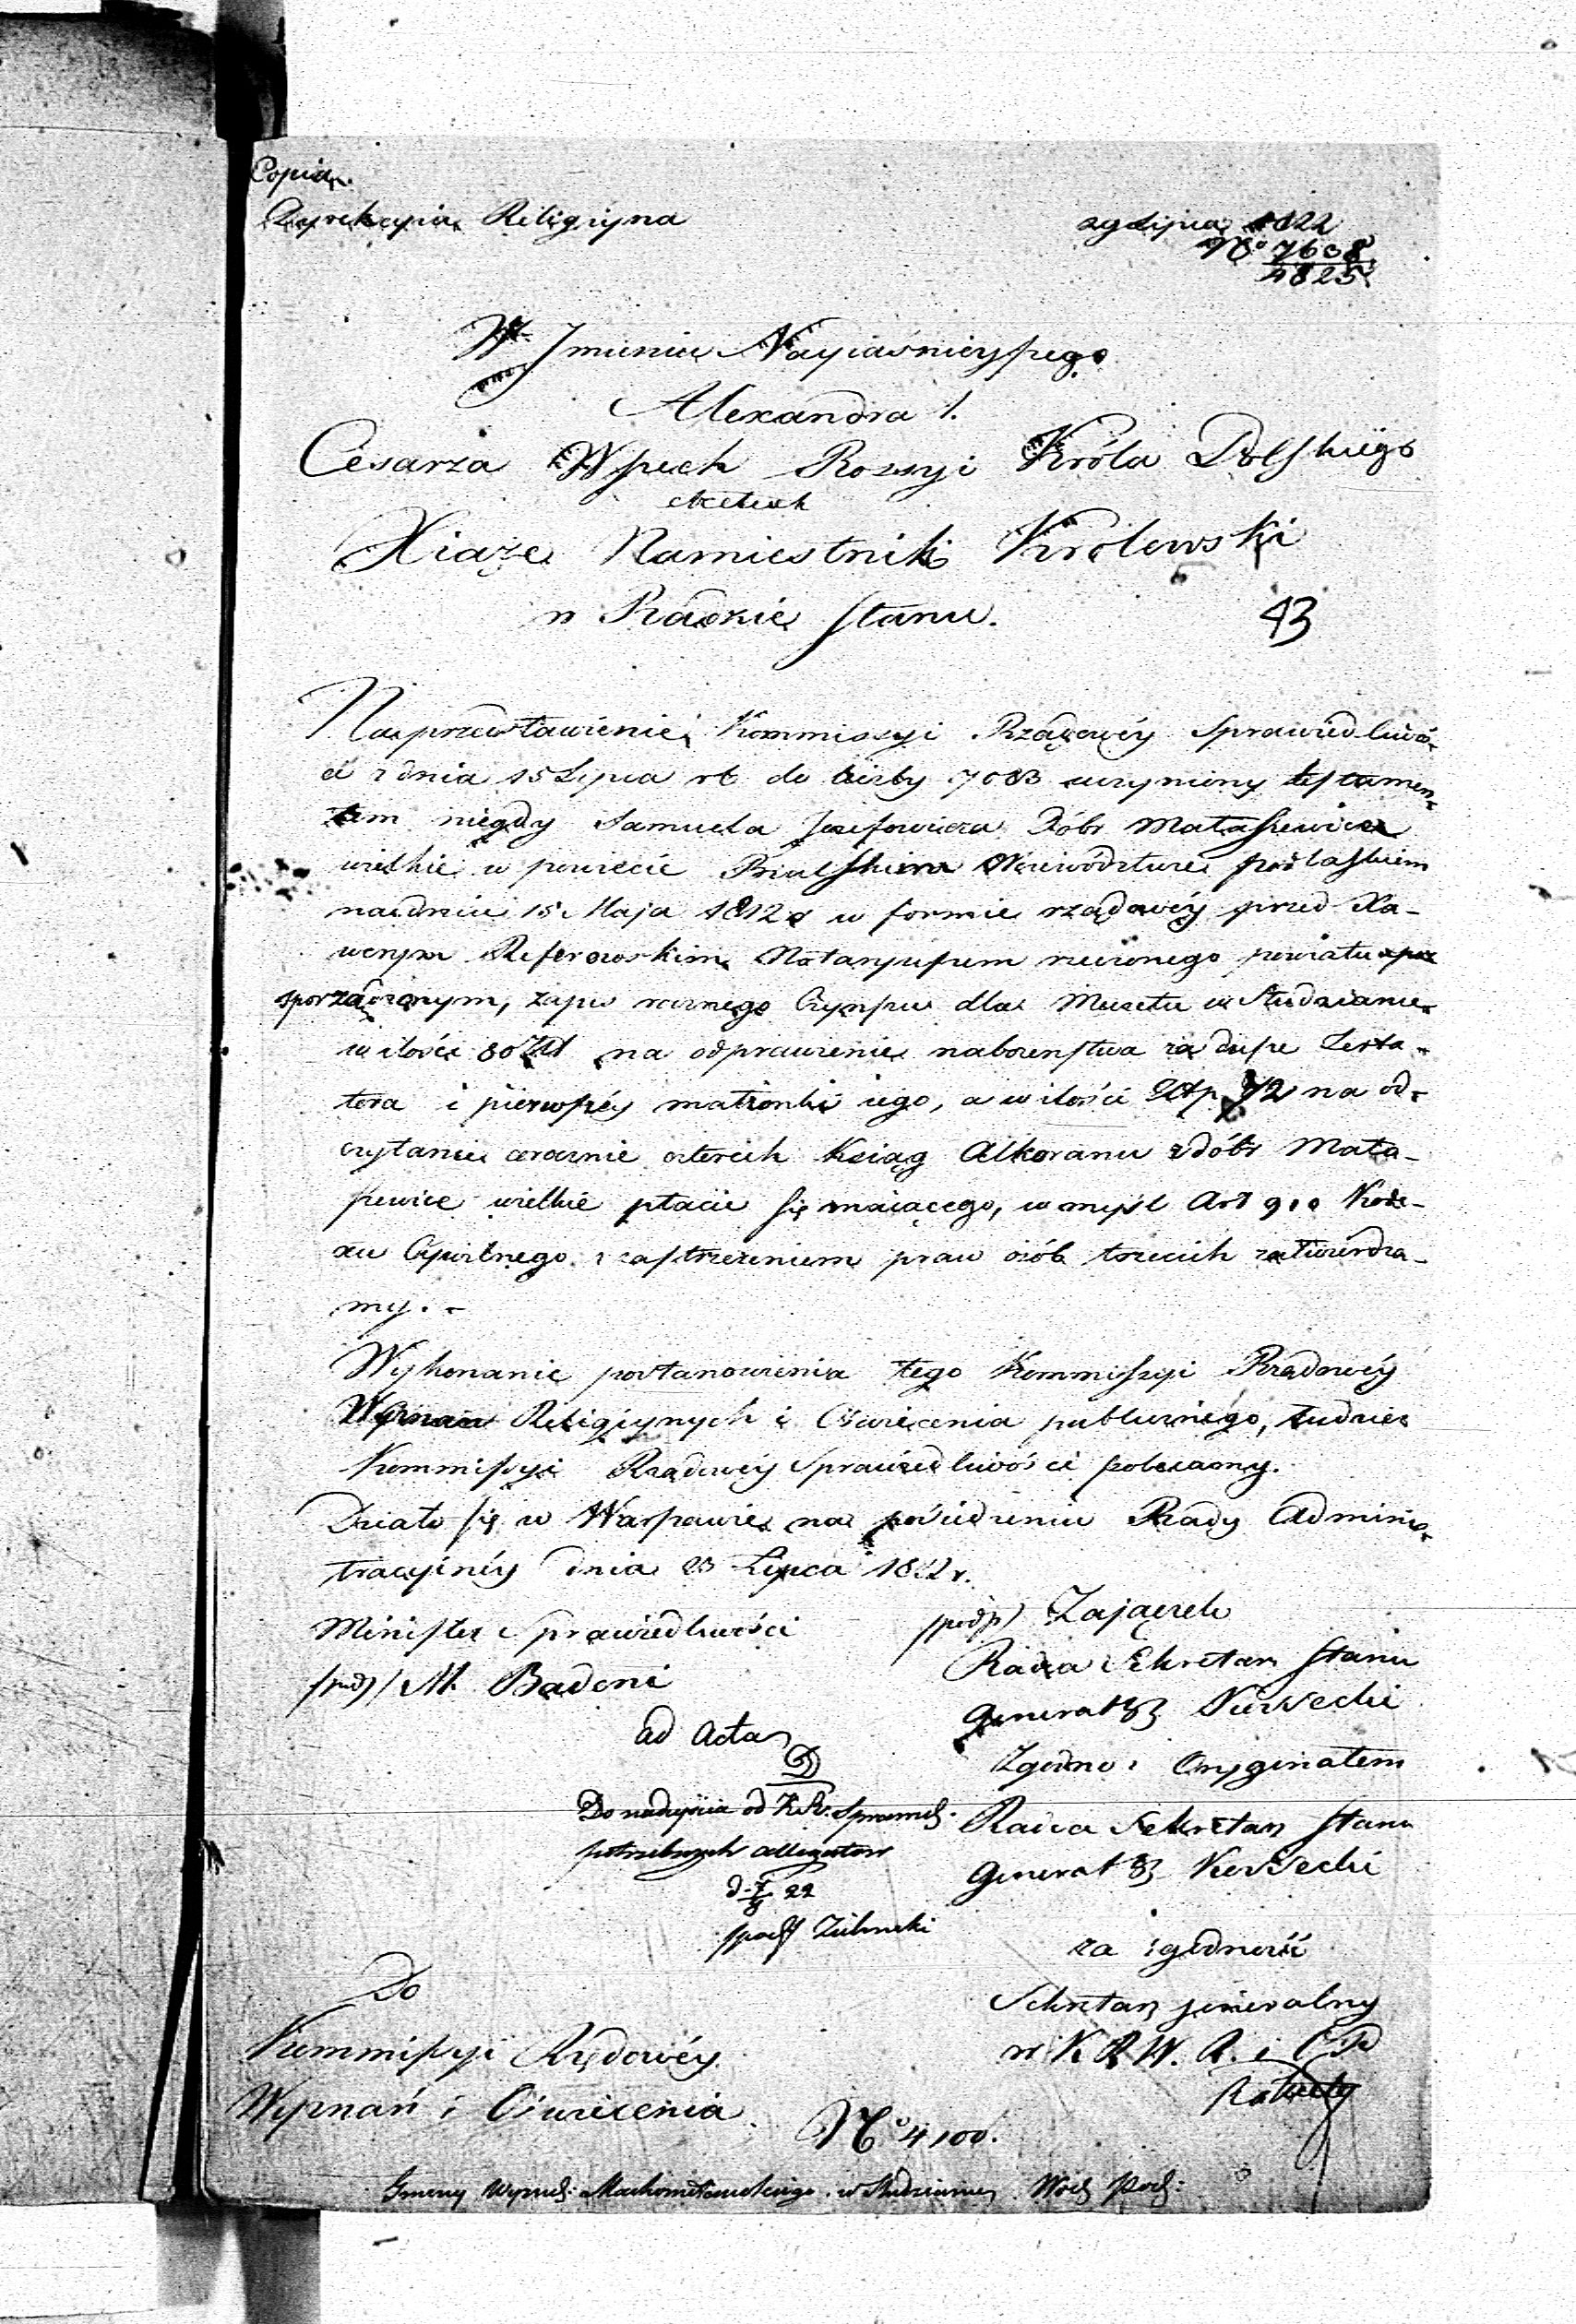 Copia.
Dyrekcyia Religiyna
29 Lipca 1822
No 7638
4825
W Imieniu Nayiaśnieyszego
Alexandra I.
Cesarza Wszech Rossyi Króla Polskiego
etc etc etc
Xiąże Namiestnik Królewski
w Radzie Stanu.
43
Na przedstawienie Kommissyi Rządowéy Sprawiedliwoś-
ci z dnia 15 Lipca rb do liczby 7083 uczyniony testamen-
tem niegdy Samuela Jozefowicza Dóbr Małaszewicze
wielkie w powiecie Bialskim Woiewództwie podlaskiem
na dniu 15 Maja 1812 r w formie rządowéy przed Xa-
werym Notaryuszem rzeczonego powiatu
sporządzonym, zapis rocznego Czynszu dla Meczetu w Studziance
w ilości 80 Złł na odprawienie nabożenstwa za duszę Testa-
tora i pierwszéy małżonki iego, a w ilości Złp 72 na od-
czytanie corocznie czterech Ksiąg Alkoranu z dóbr Mała-
szewice wielkie płacić się maiącego, w myśl Art 910 Kode-
xu Cywilnego z zastrzeżeniem praw osób trzecich zatwierdza-
my. -
Wykonanie postanowienia tego Kommissyi Rządowéy
Wyznań Religiynych i Oświecenia publicznego, tudzież
Kommissyi Rządowéy Sprawiedliwości polecamy.
Działo się w Warszawie na posiedzeniu Rady Adminis-
tracyinéy dnia 23 Lipca 1822 r.
Minister Sprawiedliwości
/podp/ M. Badeni
(podp) Zajączek
Radca Sekretarz Stanu
Generał B Kossecki
ad Acta
D
Zgodno z Oryginałem
Do nadejścia od K.R. Sprawied.
potrzebnych allegatow
Radca Sekretarz Stanu
Generał B Kossecki
22
za zgodność
Do
Sekretarz jeneralny
Kommissyi Rządowéy
w K R W. R. i OP
Wyznań i Oświecenia
No 4100.
Gminy Wyznań: Machometańskiego w Studziance Woj Pod: